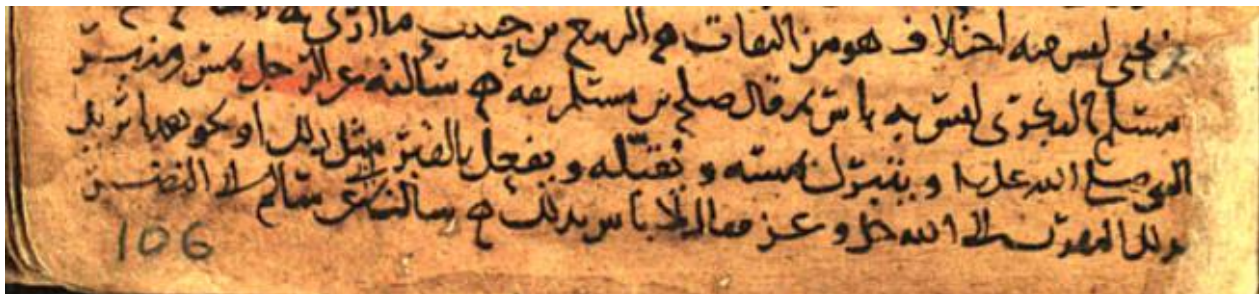 يحيى ليس فيه اختلاف هو من الثقات ه الربيع بن حبيب ما ارى به
مسلم النحوى ليس به باس قال صلح بن مسلم ثقه ه سألته عن الرجل يمس منبر
النبى صلى الله عليه و يتبرك بمسه و يقبله و يفعل بالقبر مثل ذلك او نحو هذا يريد
بذلك التقرب الى الله جل و عز فقال لا باس بذلك ه سالته عن سالم ابى النضر
106